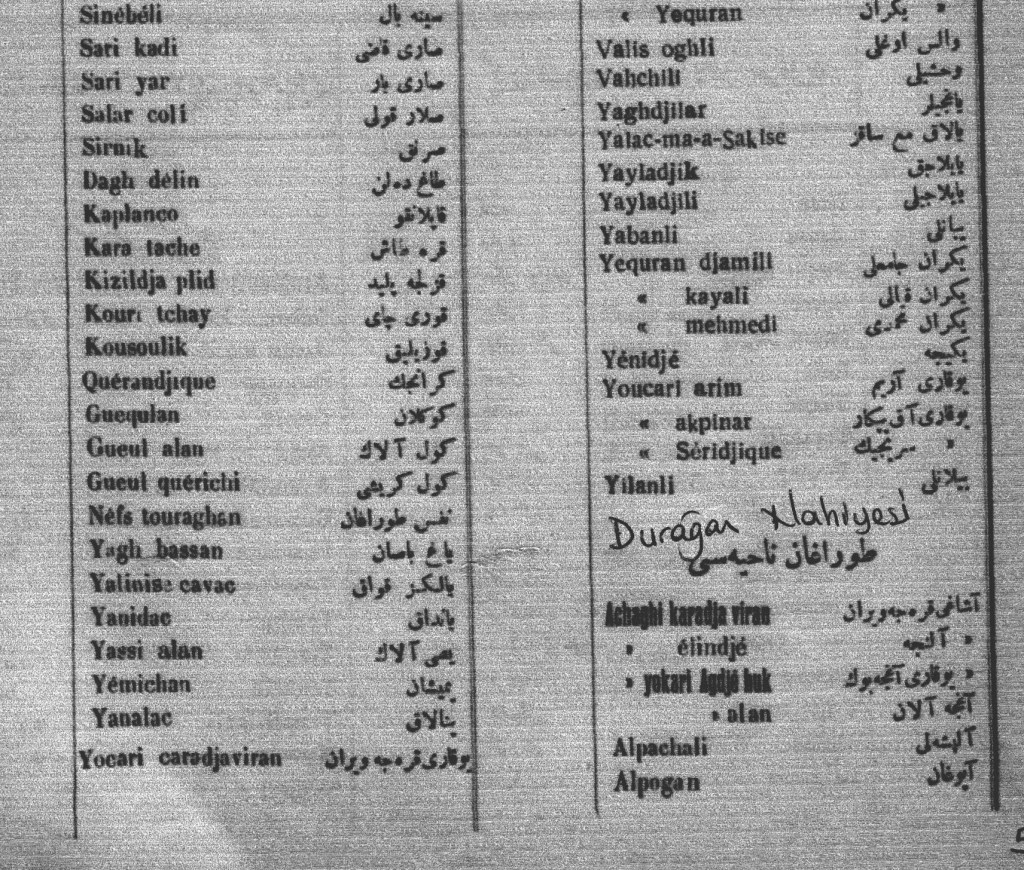 Sinébéli سينه بال
Sari kadi صارى قاضى
Sari yar صارى يار
Salar coli صلار قولى
Sirnik صرنق
Dagh délin طاغ دهلن
Kaplanco قاپلانقو
Kara tache قره طاش
Kizildja plid قزلجه پليد
Kouri tchay قورى چاى
Kousoulik قوزيليق
Quérandjique كرانجك
Guequlan كوكلان
Gueul alan كول آلاك
Gueul quérichi كول كريشى
Néfs touraghan نفس طوراغان
Yagh bassan ياغ باصان
Yalinise cavac يالكز قواق
Yanidac يانداق
Yassi alan يصى آلاك
Yémichan يميشان
Yanalac ينالاق
Yocari caradjaviran يوقارى قره‌جه ويران
« Yequran » يكران
Valis oghli والس اوغلى
Vahchili وحشيل
Yaghdjilar ياغجيلر
Yalac-ma-a-Sakise يالاق مع ساقز
Yayladjik يايلاجق
Yayladjili يايلاجيلى
Yabanli يبانلى
Yequran djamili يكران جامعلى
« kayali يكران قيالى
« mehmedi يكران محمدى
Yénidjé يكيجه
Youcari arim يوقارى آريم
« akpinar يوقارى آق پيكار
« Séridjique » سريجيك
Yilanli ييلانلى
Durağan Nahiyesi
طوراغان ناحيه‌سى
Achaghi karadja viran آشاغى قره‌جه ويران
» élindjé » آلنجه
» yokari Agdjé buk » يوقارى آقجه بوك
» alan آقجه آلان
Alpachali آلپشه‌لى
Alpogan آلپوغان